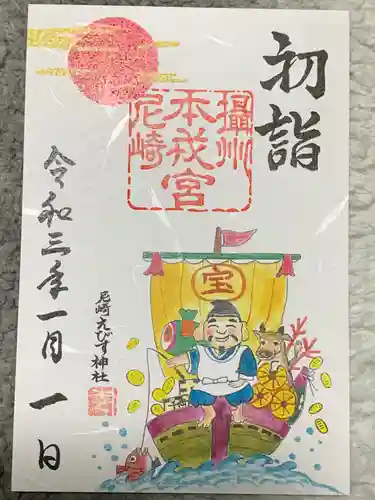 初詣
攝州
本戎宮
尼崎
令和三年一月一日
尼崎えびす神社
宝